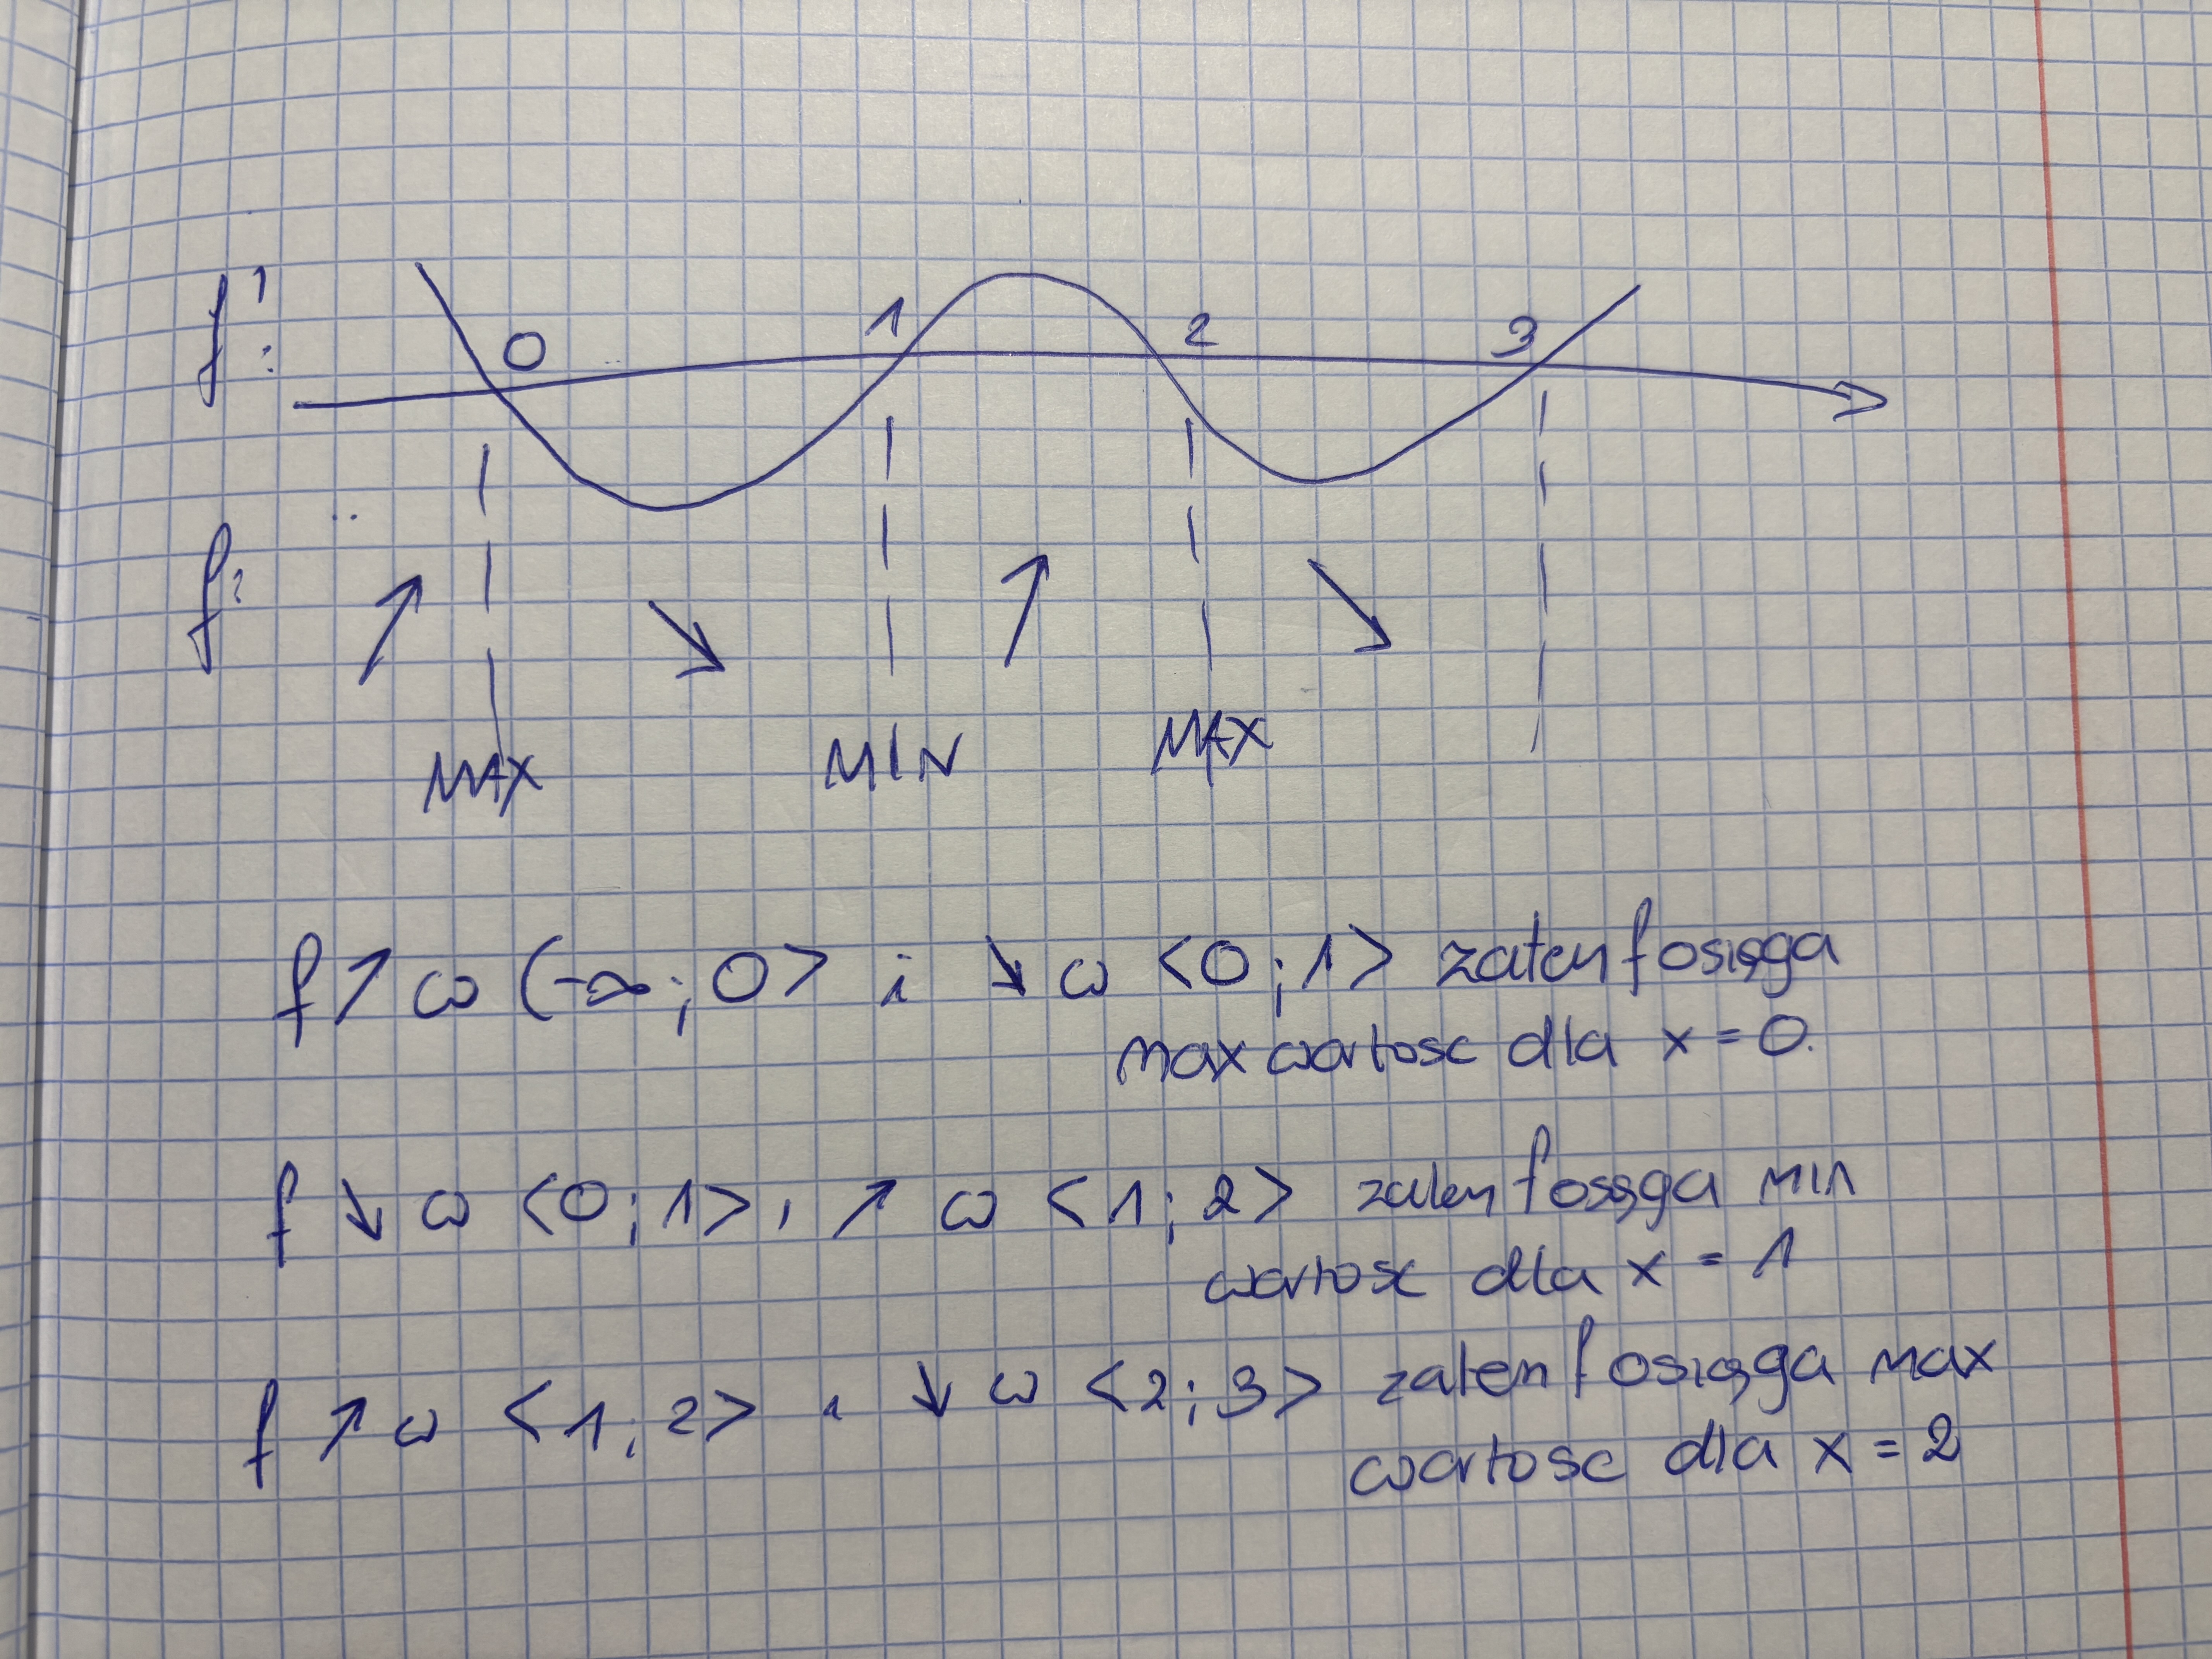 f':
0 1 2 3
f:
↗ ↘ ↗ ↘
MAX MIN MAX
f ↗ w (-∞; 0> i ↘ w <0;1> zatem f osiąga
max wartosc dla x = 0.
f ↘ w <0;1> i ↗ w <1;2> zatem f osiąga min
wartosc dla x = 1
f ↗ w <1;2> i ↘ w <2;3> zatem f osiąga max
wartosc dla x = 2